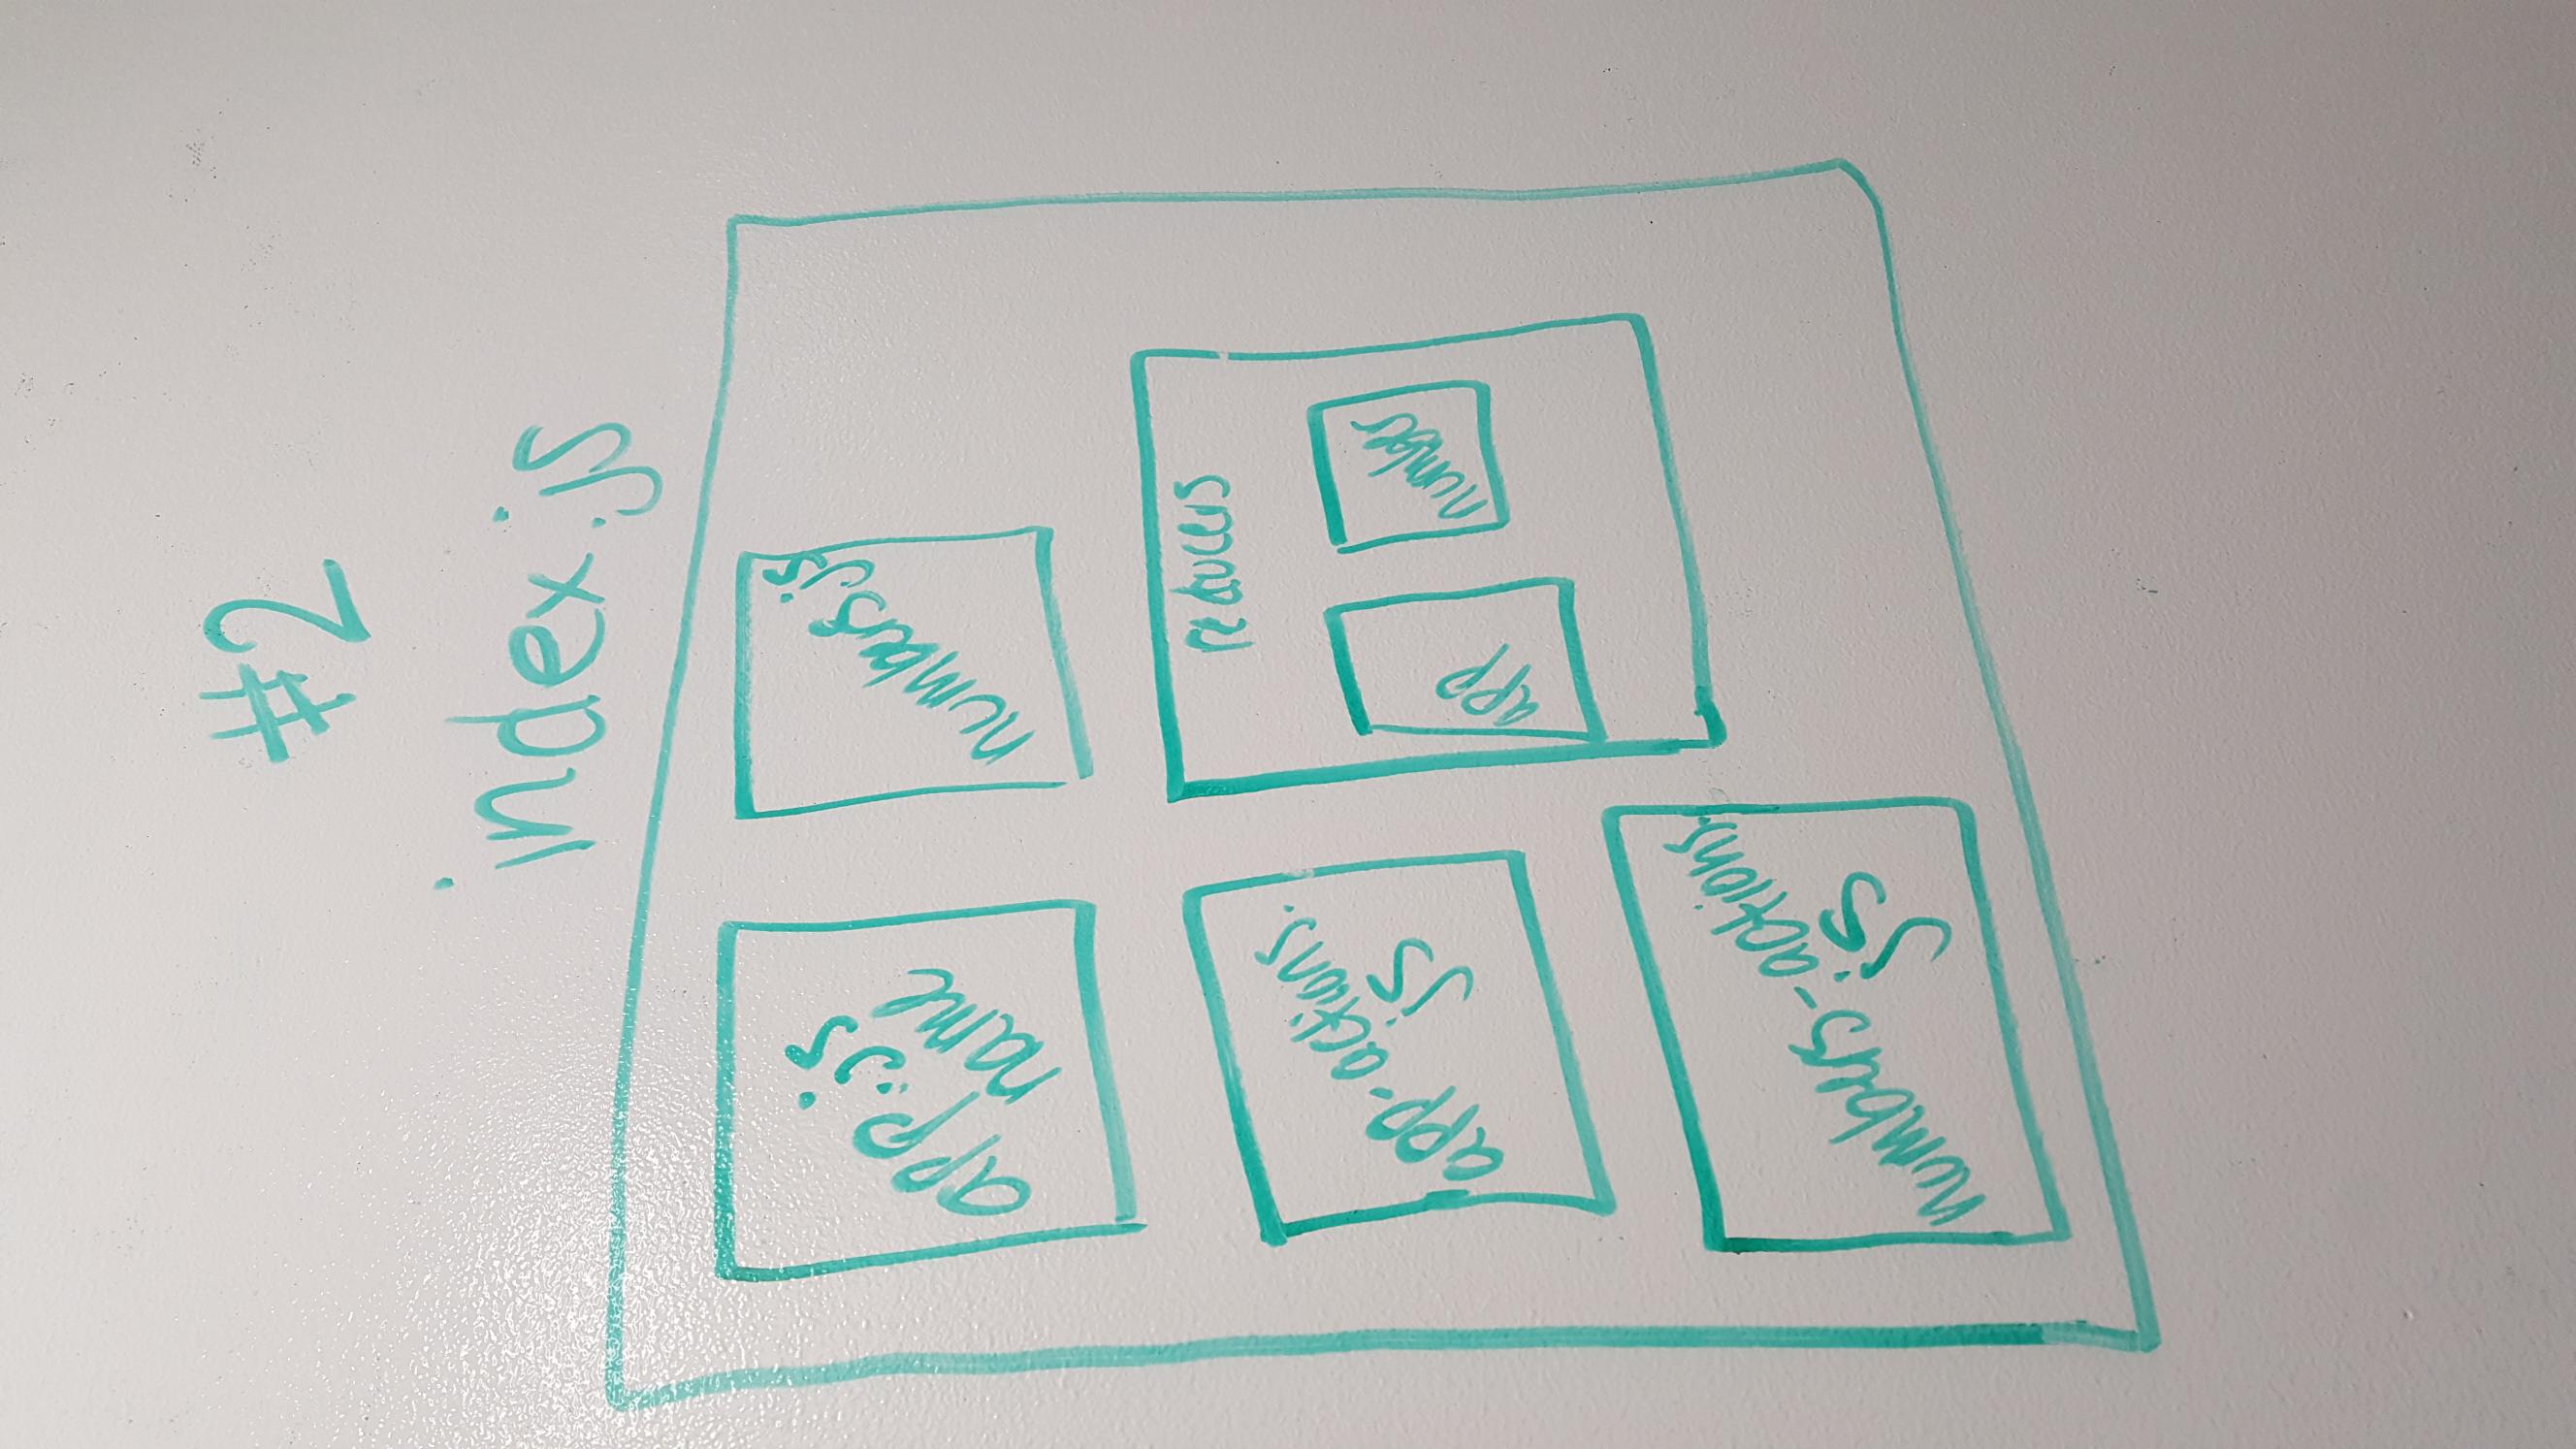 #2
index.js
app.js
name
numbers.js
app-actions.
js
reducers
app
number
numbers-actions.
js